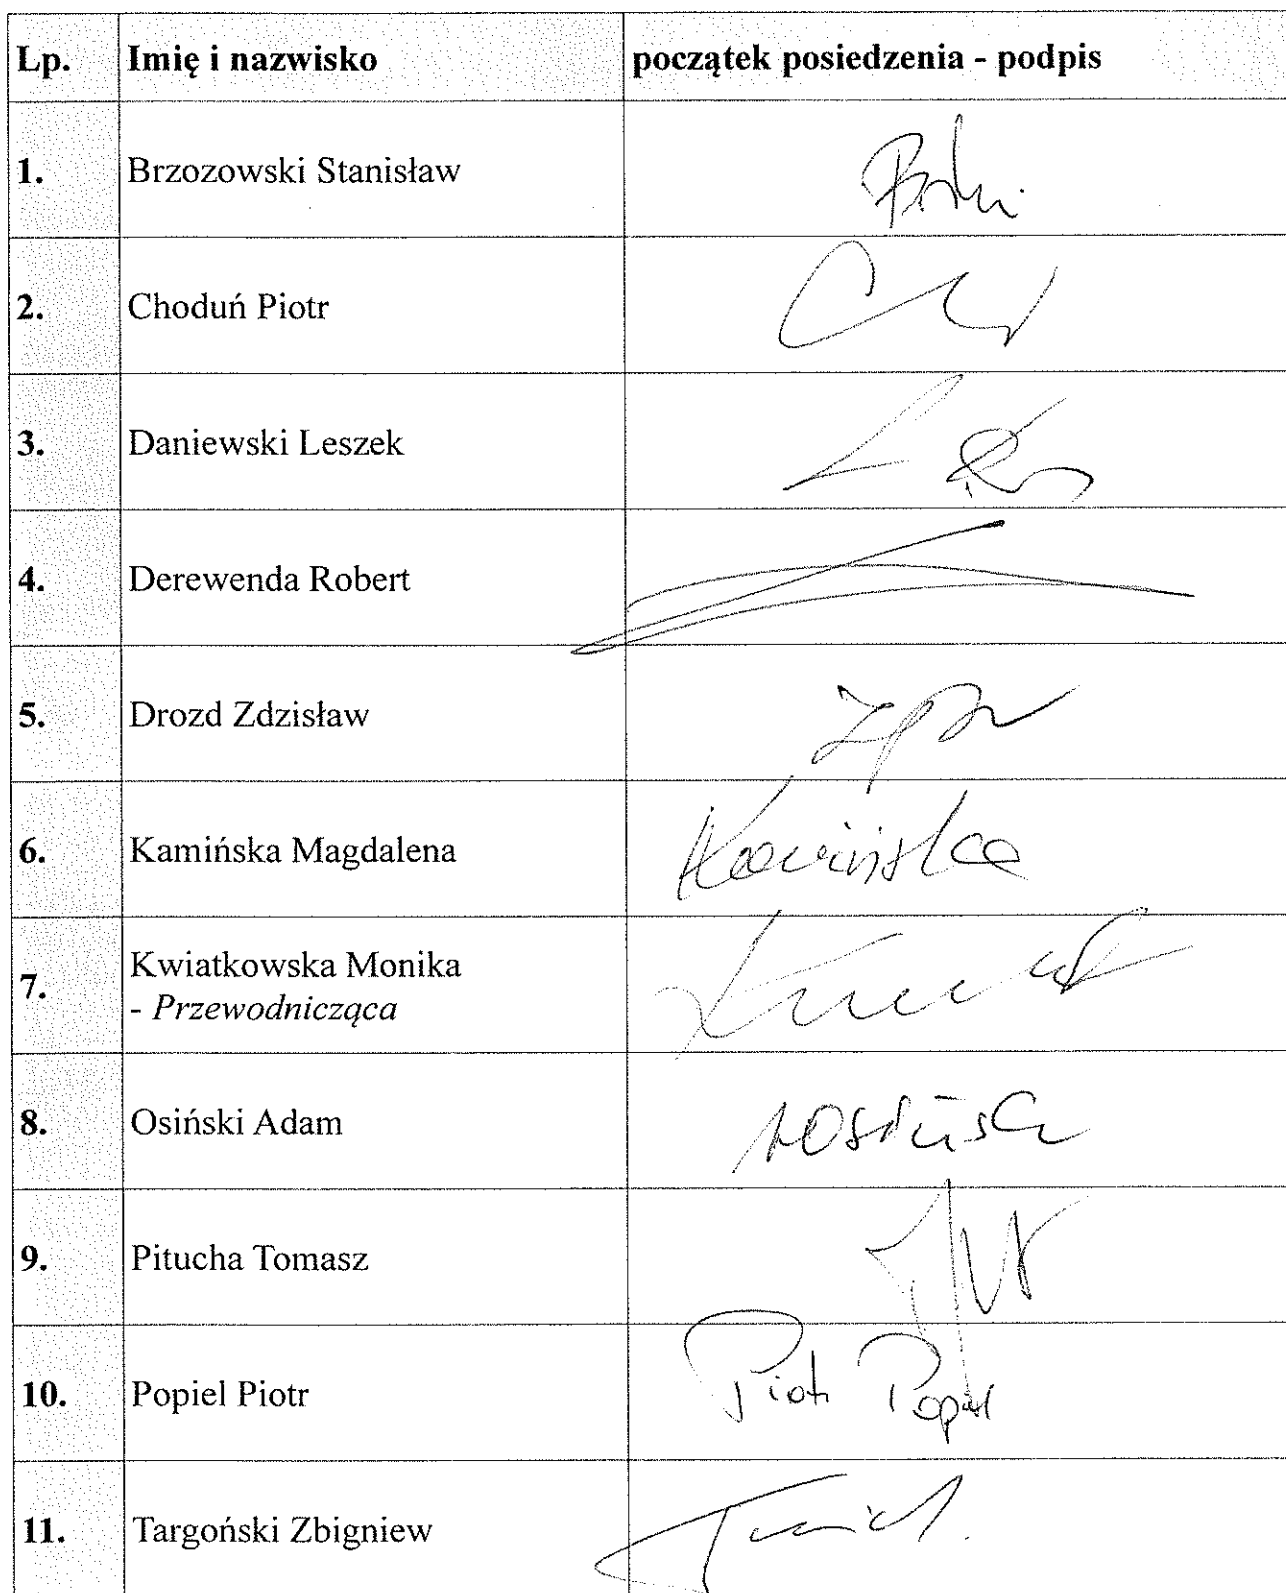 Lp. Imię i nazwisko początek posiedzenia - podpis
1. Brzozowski Stanisław
2. Choduń Piotr
3. Daniewski Leszek
4. Derewenda Robert
5. Drozd Zdzisław
6. Kamińska Magdalena Kamińska
7. Kwiatkowska Monika
- Przewodnicząca
8. Osiński Adam
9. Pitucha Tomasz
10. Popiel Piotr Piotr Popiel
11. Targoński Zbigniew